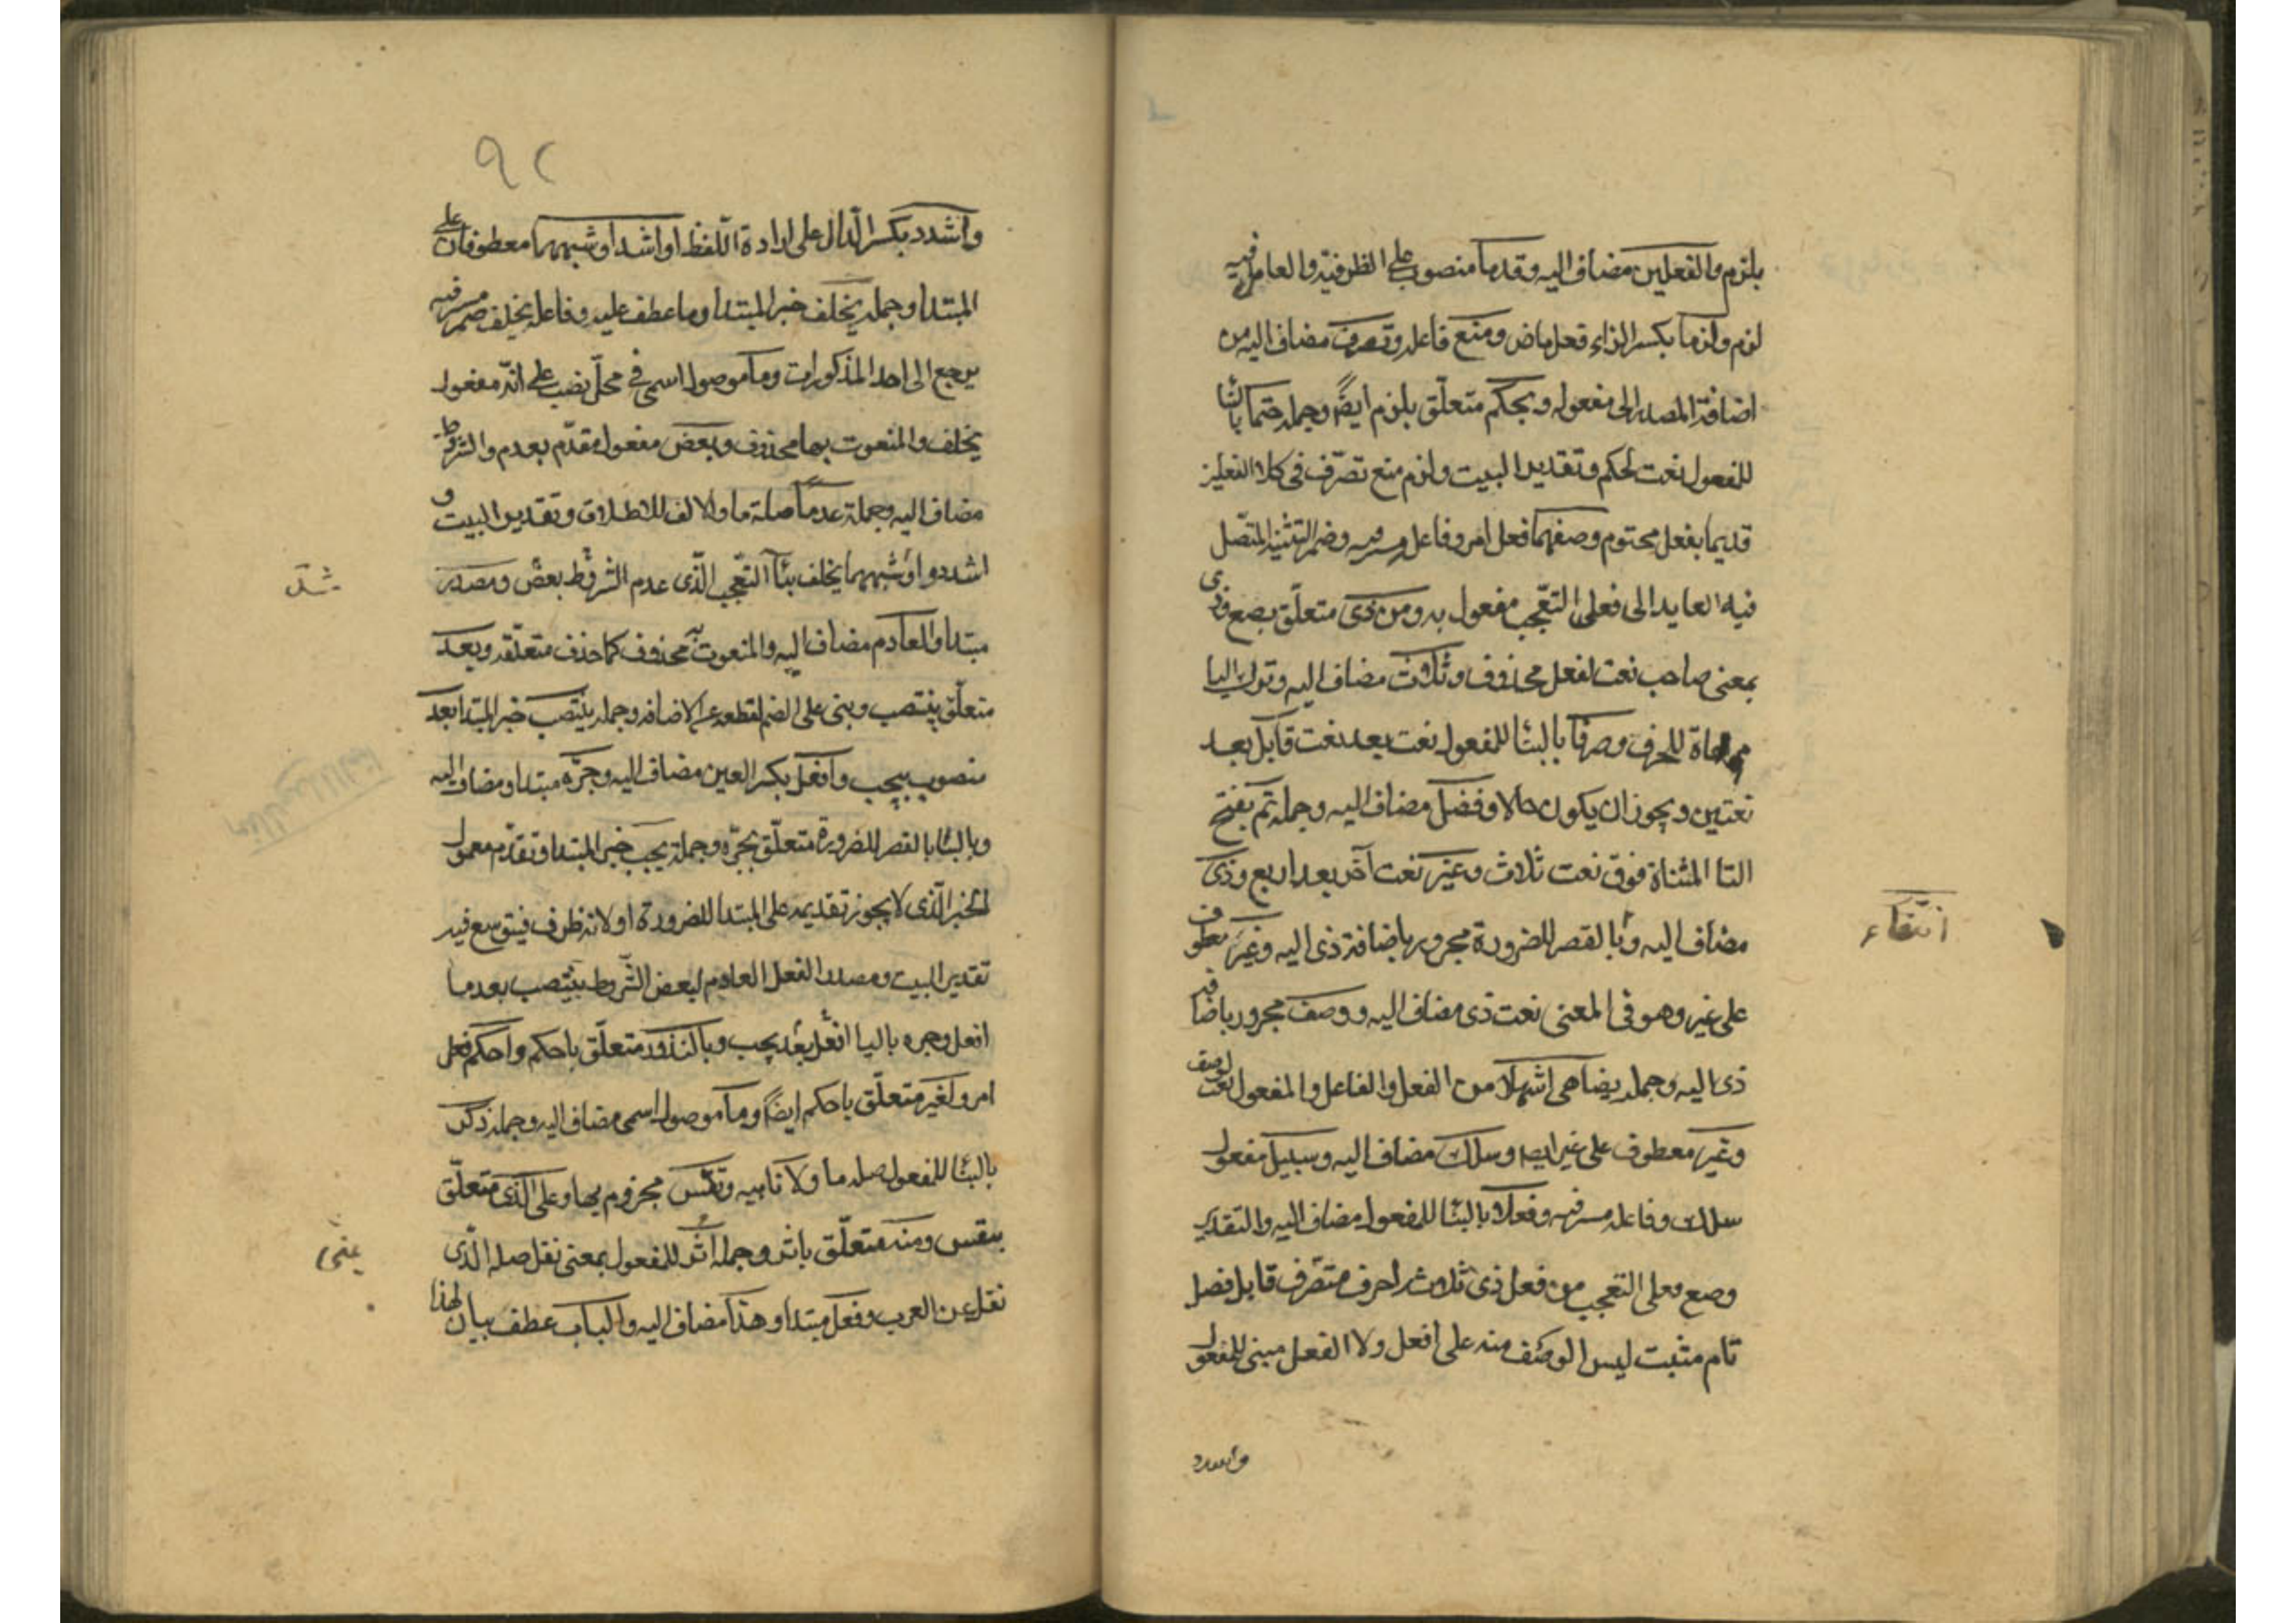 بلزم والفعلين مضاف اليه وقدما منصوب على الظرفية والعامل فيه
لزم ولزما بكسر الزاء فعل ماض ومنع فاعله وتصرف مضاف اليه من
اضافة المصدر الى مفعوله وبحكم متعلق بلزم ايضًا وجملة حتما بالبنا
للمفعول نعت لحكم وتقدير البيت ولزم منع تصرّف في كلا الفعلين
قديما بفعل محتوم وصغهما فعل امر وفاعل مستتر فيه وضمير التثنية المتّصل
فيه العايد الى فعلى التعّجب مفعول به ومن ذى متعلّق بصغ وذى
بمعنى صاحب نعت لفعل محذوف وثلاث مضاف اليه وترك اليا
مراعاة للحرف وصرفا بالبنا للمفعول نعت بعد نعت قابل بعد
نعتين ويجوز ان يكون حالا وفضل مضاف اليه وجملة تم بفتح
التا المثناة فوق نعت ثلاث وغير نعت آخر بعد اربع وذى
مضاف اليه وبا لقصر للضرورة مجرور باضافة ذى اليه وغير معطوف
على غير وهو في المعنى نعت ذى مضاف اليه ووصف مجرور باضافة
ذى اليه وجملة يضاهى اشهلا من الفعل والفاعل والمفعول نعت لوصف
وغير معطوف على غير ايضا وسالك مضاف اليه وسبيل مفعول
سالك وفاعله مستتر فيه وفعلا بالبنا للمفعول مضاف اليه والتقدير
وصغ فعلى التعجب من فعل ذى ثلاث احرف متصرف قابل فضل
تام مثبت ليس الوصف منه على افعل ولا الفعل مبنى للمفعول
واشدد
انتفاء
٩٢
واشدد بكسر الدّال على ارادة اللّفظ او اشد او شبههما معطوفان على
المبتدا وجملة يخلف خبر المبتدا وما عطف عليه وفاعل يخلف ضمير فيه
يرجع الى احد المذكورات وما موصول اسمى في محلّ نصب على انّه مفعول
يخلف والمنعوت بها محذوف وبعض مفعول مقدّم بعدم والشروط
مضاف اليه وجملة عدما صلة ما والالف للاطلاق وتقدير البيت و
اشدد او شبههما يخلف بنآ التعّجب الّذى عدم الشروط بعض ومصدر
مبتدا والعادم مضاف اليه والمنعوت به محذوف كما حذف متعلّقه وبعد
متعلّق ينتصب وبنى على الضم لقطعه عن الاضافه وجملة ينتصب خبر المبتدا بعد
منصوب بيجب وافعل بكسر العين مضاف اليه وجرّه مبتدا ومضاف اليه
وبالبا بالقصر للضرورة متعلّق بجرّه وجملة يجب خبر المبتدا وتقدّم معمول
الخبر الّذى لا يجوز تقديمه على المبتدا للضرورة او لانه ظرف فيتوسع فيه
تقدير البيت ومصدر الفعل العادم لبعض الشّروط ينتصب بعد ما
افعل وجره باليا افعل بعد يجب وبالندور متعلّق باحكم واحكم فعل
امر ولغير متعلّق باحكم ايضًا وما موصول اسمى مضاف اليه وجملة ذكر
بالبنا للمفعول صلة ما ولا ناهيه وتقس مجزوم بها وعلى الّذى متعلّق
بتقس ومنه متعلّق باثر وجملة اثر للمفعول بمعنى نقل صلة الّذى
نقل عن العرب وفعل مبتدا وهذا مضاف اليه والباب عطف بيان لهذا